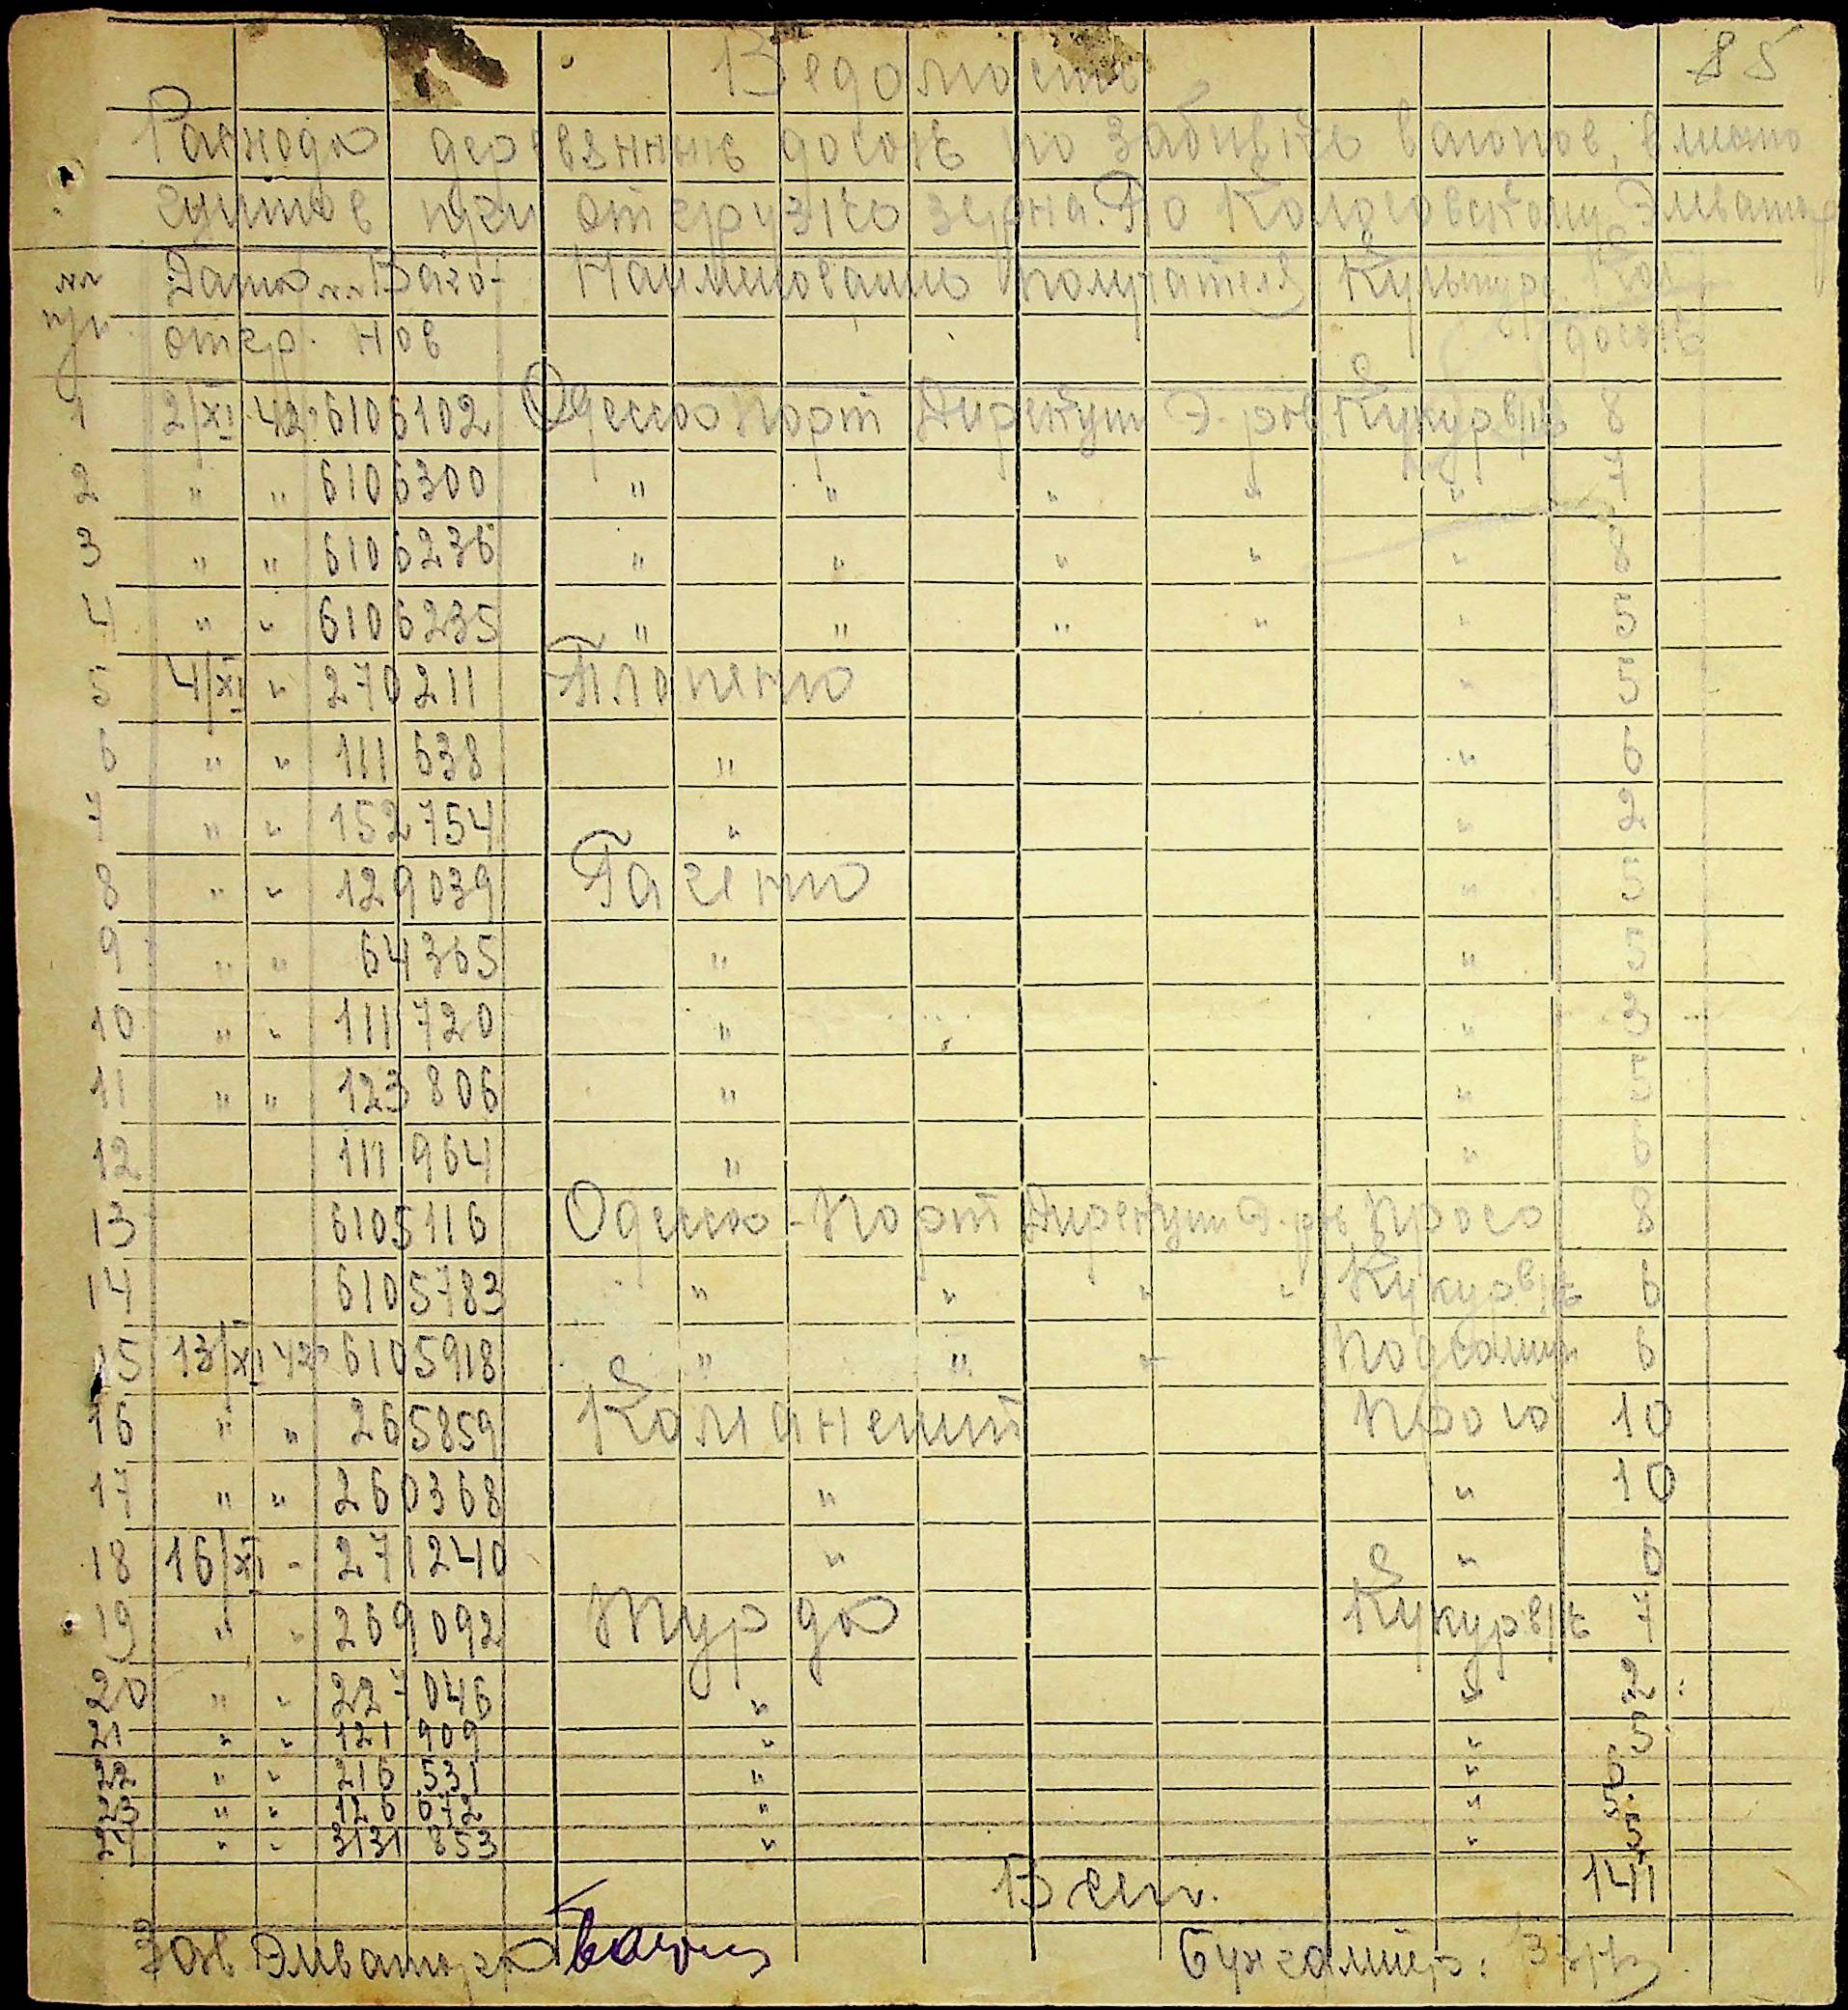 85
Ведомость
Расхода деревянных досок по забивке вагонов, вместо
щитов при отгрузке зерна. По Колосовскому Элеватору
№№ Дата №№ Ваго- Наименование получателя Культура Кол.
п/п. отгр. нов досок
1 2/XI 42г 6106102 Одесса Порт Дирекция Э-ров Кукур. в/к 8
2 " " 6106300 " " " " " 7
3 " " 6106236 " " " " " 8
4 " " 6106235 " " " " " 5
5 4/XI " 270211 " 5
6 " " 111638 " " 6
7 " " 152754 " " 2
8 " " 129039 " 5
9 " " 64365 " " 5
10 " " 111720 " " 3
11 " " 123806 " " 5
12 111964 " " 6
13 6105116 Одесса-Порт Дирекция Э-ров Просо 8
14 6105783 " " " " Кукур. в/к 6
15 13/XI 42г 6105918 " " " Подсолнух 6
16 " " 265859 Просо 10
17 " " 260368 " " 10
18 16/XI - 271240 " " 6
19 " " 269092 Турда Кукур. в/к 7
20 " " 227046 " " 2
21 " " 121909 " " 5
22 " " 216531 " " 6
23 " " " " 5
24 " " 3131853 " " 5
Всего. 141
Зав Элеватора Бухгалтер: